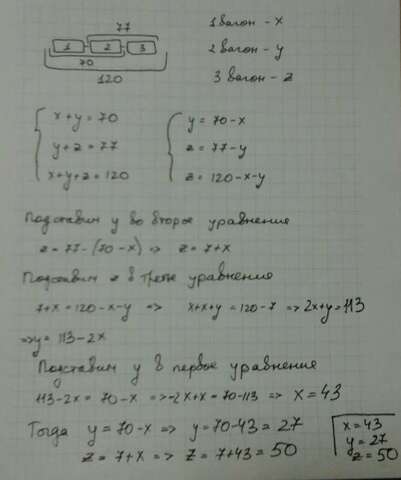 77
1 2 3
70
120
1 вагон - x
2 вагон - y
3 вагон - z
x+y = 70
y+z = 77
x+y+z = 120
y = 70-x
z = 77-y
z = 120-x-y
Подставим y во второе уравнение
z = 77-(70-x) => z = 7+x
Подставим z в третье уравнения
7+x = 120-x-y => x+x+y = 120-7 => 2x+y = 113
=> y = 113-2x
Подставим y в первое уравнение
113-2x = 70-x => -2x+x = 70-113 => x = 43
Тогда y = 70-x => y = 70-43 = 27
z = 7+x => z = 7+43 = 50
x = 43
y = 27
z = 50